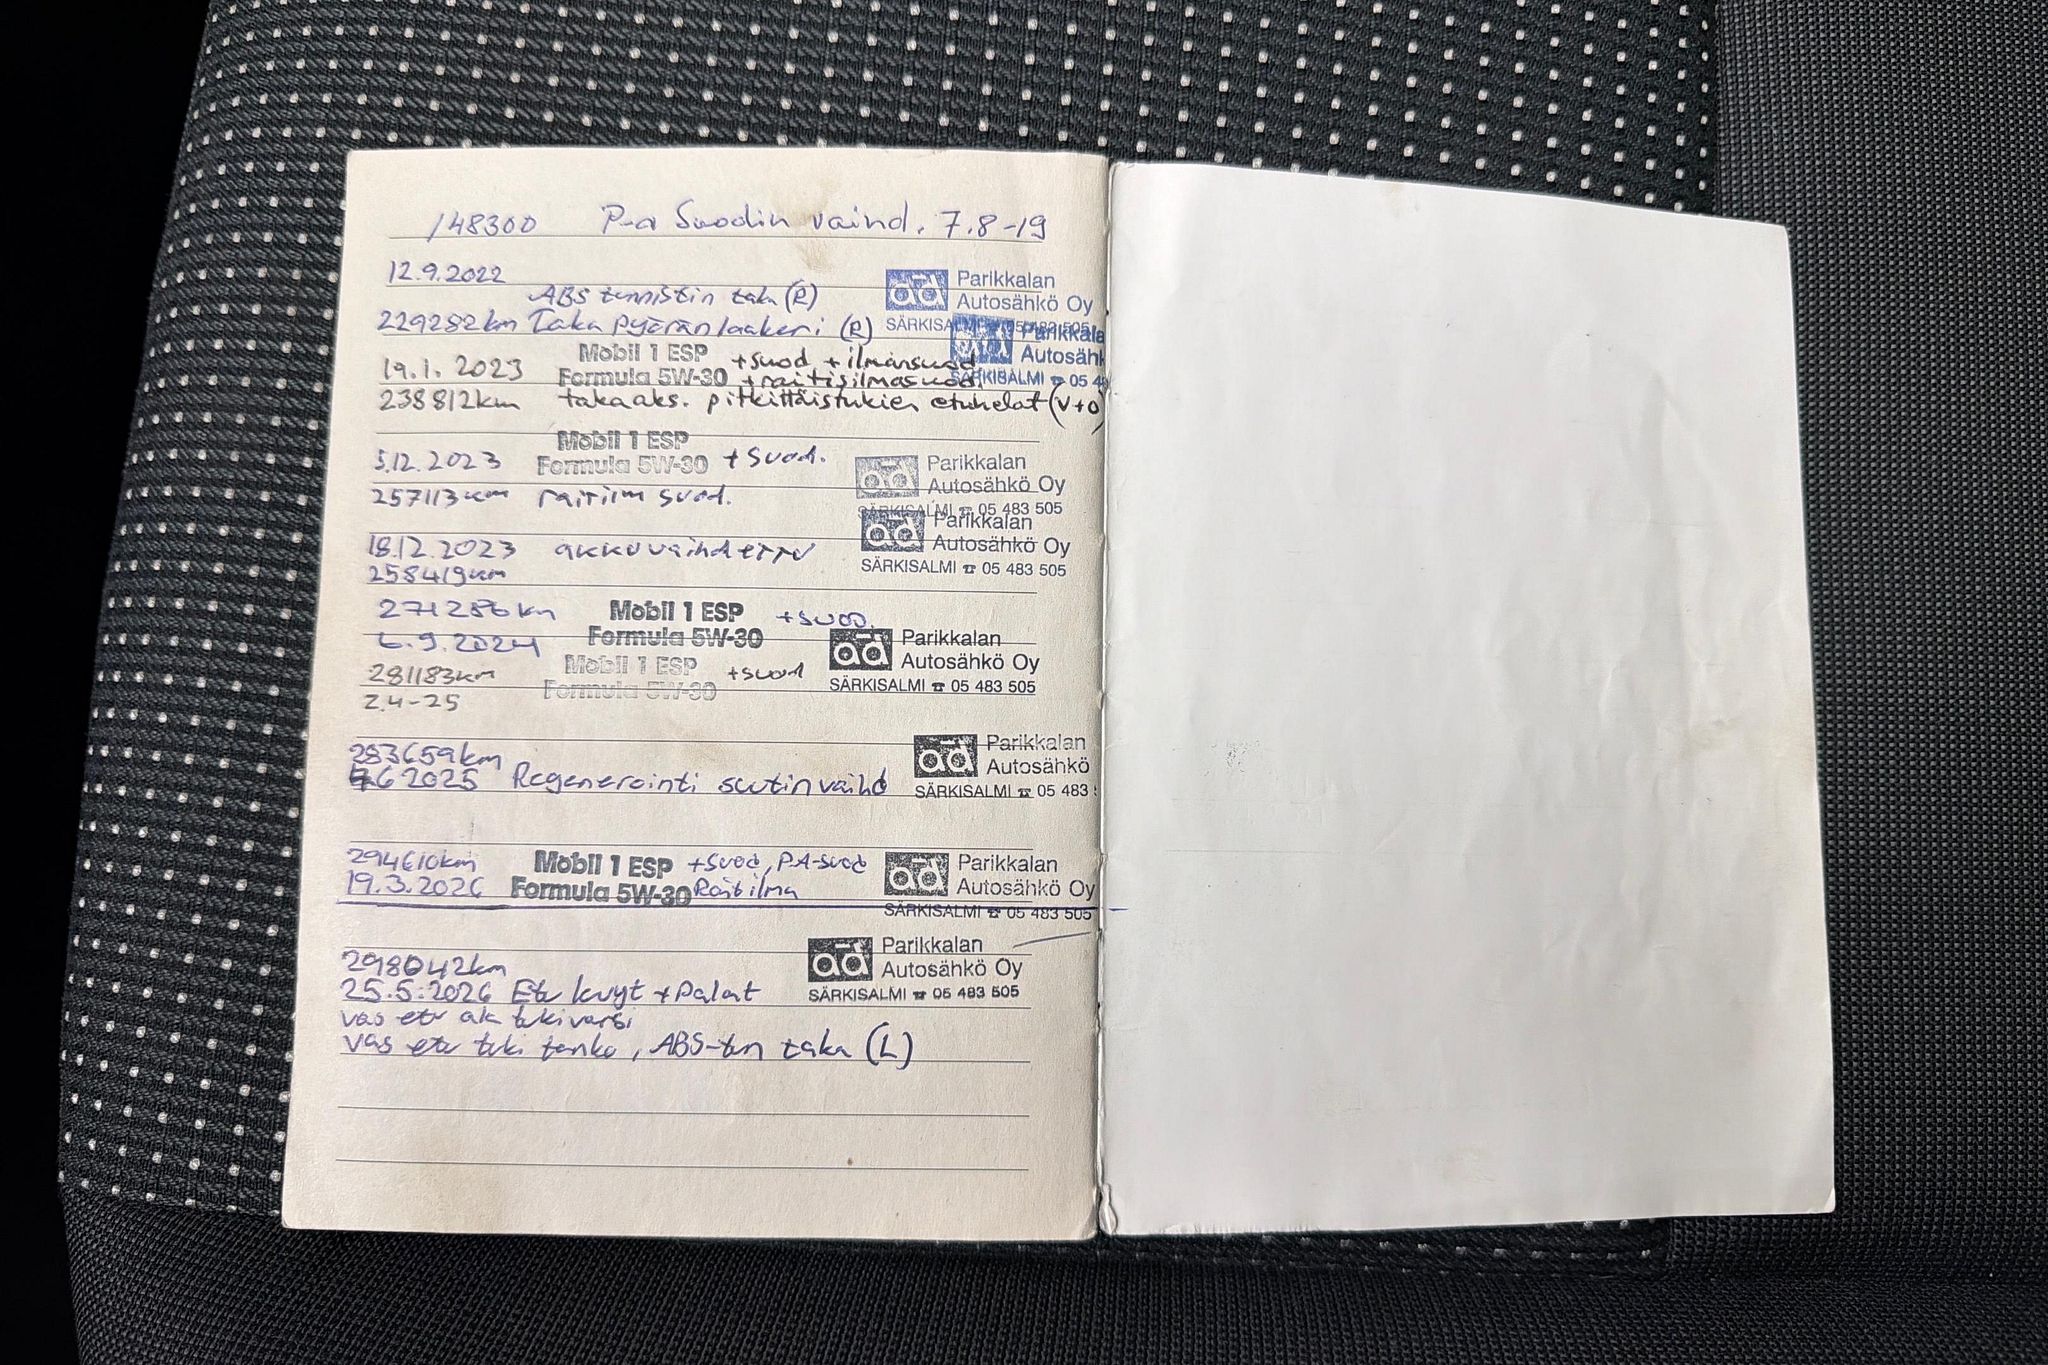 148300 P-a Suodin vaihd. 7.8-19
12.9.2022
ABS tunnistin taka (R)
229282km Taka pyörän laakeri (R)
Parikkalan
Autosähkö Oy
SÄRKISALMI ☎ 05 483 505
19.1.2023 Mobil 1 ESP +suod + ilmansuod
Formula 5W-30 + raitisilmasuod.
238812km takaaks. pitkittäistukien etuhelat (v+o)
Parikkala
Autosähk
SÄRKISALMI ☎ 05 4
5.12.2023 Mobil 1 ESP
Formula 5W-30 + suod.
257113km raitilm suod.
Parikkalan
Autosähkö Oy
SÄRKISALMI ☎ 05 483 505
18.12.2023 akku vaihdettu
258419km
Parikkalan
Autosähkö Oy
SÄRKISALMI ☎ 05 483 505
271286km Mobil 1 ESP +suod.
6.9.2024 Formula 5W-30
Parikkalan
Autosähkö Oy
SÄRKISALMI ☎ 05 483 505
281183km Mobil 1 ESP +suod
Formula 5W-30
2.4-25
283659km
6 2025 Regenerointi suutin vaihd
Parikkalan
Autosähkö
SÄRKISALMI ☎ 05 483
294610km Mobil 1 ESP +suod, PA-suod
19.3.2026 Formula 5W-30 Raitilma
Parikkalan
Autosähkö Oy
SÄRKISALMI ☎ 05 483 505
298042km
25.5.2026 Etu kuyt + Palat
Parikkalan
Autosähkö Oy
SÄRKISALMI ☎ 05 483 505
vas etu ala tukivarsi
vas etu tuki tanko, ABS-tun taka (L)